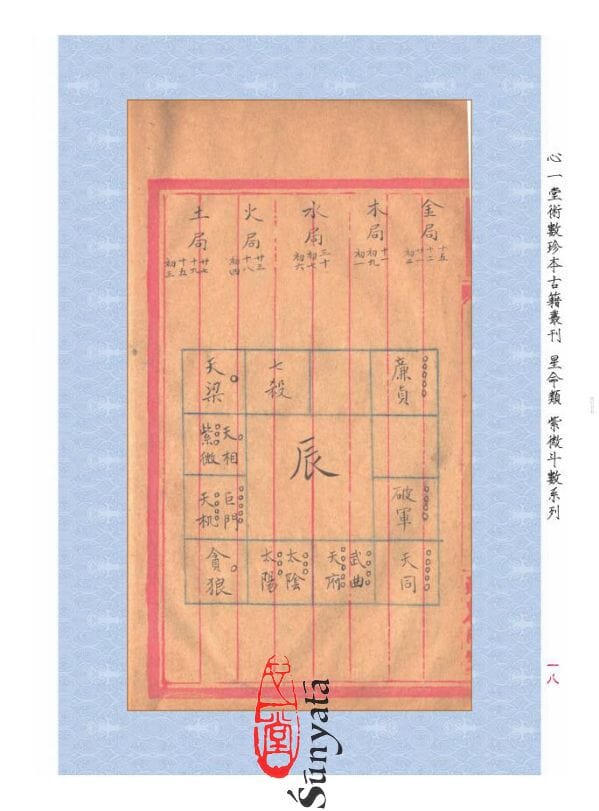 心一堂術數珍本古籍叢刊 星命類 紫微斗數系列
一八
金局
十五
十二
廿一
初二
木局
十一
初九
初一
水局
三十
初七
初六
火局
廿三
十八
初四
土局
廿七
十九
十五
初三
廉貞
七殺
天梁
天相
紫微
辰
破軍
巨門
天机
天同
武曲
天府
太陰
太陽
貪狼
心一堂
Śūnyatā